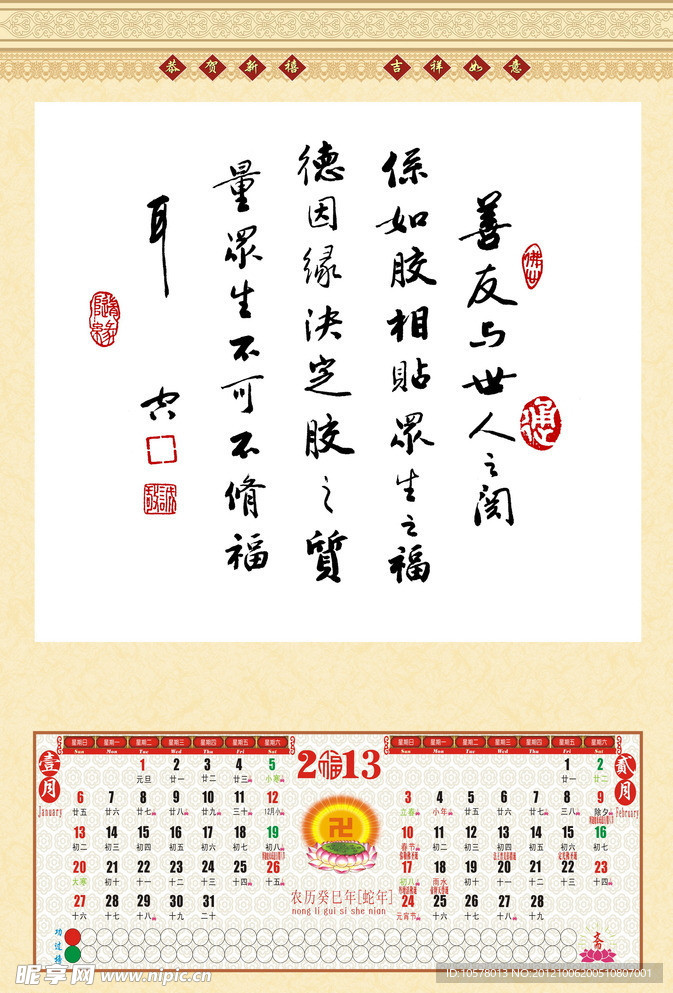 恭贺新禧 吉祥如意
善友与世人之関
係如胶相貼眾生之福
德因缘決定胶之質
量眾生不可不脩福
耳
佛
隨緣
誠敬
2福13
壹月
January
贰月
February
星期日 星期一 星期二 星期三 星期四 星期五 星期六
Sun Mon Tue Wed Thu Fri Sat
1 2 3 4 5
元旦 廿一 廿二 廿三 小寒
6 7 8 9 10 11 12
廿五 廿六 廿七 廿八 廿九 三十 12月小
13 14 15 16 17 18 19
初二 初三 初四 初五 初六 初七 初八
20 21 22 23 24 25 26
大寒 初十 十一 十二 十三 十四 十五
27 28 29 30 31
十六 十七 十八 十九 二十
星期日 星期一 星期二 星期三 星期四 星期五 星期六
Sun Mon Tue Wed Thu Fri Sat
1 2
廿一 廿二
3 4 5 6 7 8 9
立春 小年 廿五 廿六 廿七 廿八 除夕
10 11 12 13 14 15 16
春节 初二 初三 初四 初五 初六 初七
17 18 19 20 21 22 23
初八 雨水 初十 十一 十二 十三 十四
24 25 26 27 28
元宵节 十六 十七 十八 十九
卍
农历癸巳年[蛇年]
nong li gui si she nian
功过格
斋
昵享网 www.nipic.cn
ID:10578013 NO:20121006200510807001